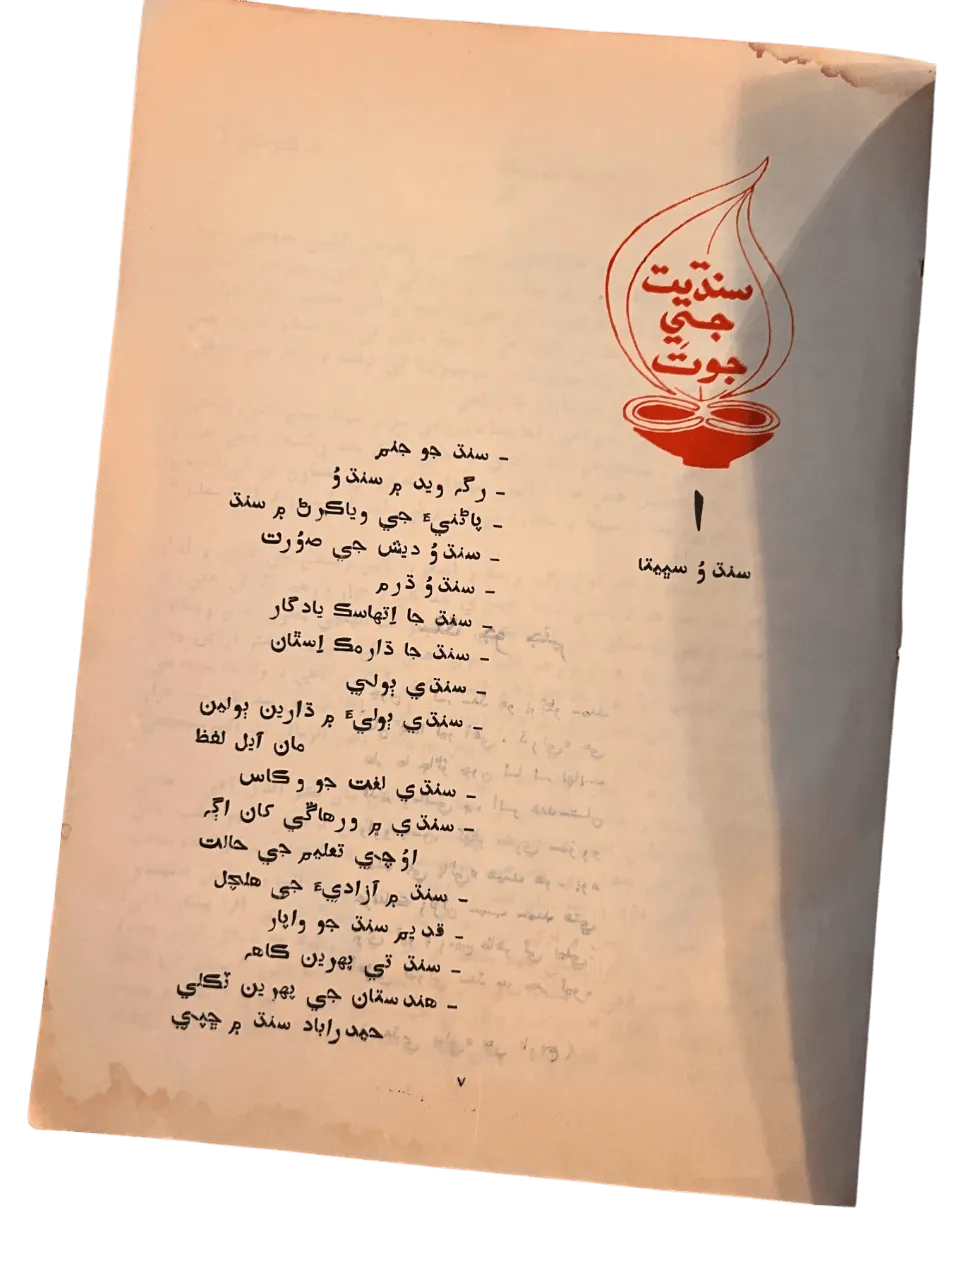 سنڌيت
جي
جوت
۱
سنڌو سڀيتا
- سنڌ جو جنم
- رگہ ويد ۾ سنڌوُ
- پاڻنيءَ جي وياڪرڻ ۾ سنڌ
- سنڌوُ ديش جي صوُرت
- سنڌوُ ڌرم
- سنڌ جا اِتهاسڪ يادگار
- سنڌ جا ڌارمڪ اِستان
- سنڌي ٻولي
- سنڌي ٻوليءَ ۾ ڌارين ٻولين
مان آيل لفظ
- سنڌي لغت جو وڪاس
- سنڌي ۾ ورهاڱي کان اڳہ
اوُچي تعليم جي حالت
- سنڌ ۾ آزاديءَ جي هلچل
- قديم سنڌ جو واپار
- سنڌ تي پهرين ڪاهہ
- هندستان جي پهرين ٽڪلي
حيدراباد سنڌ ۾ ڇپي
۷